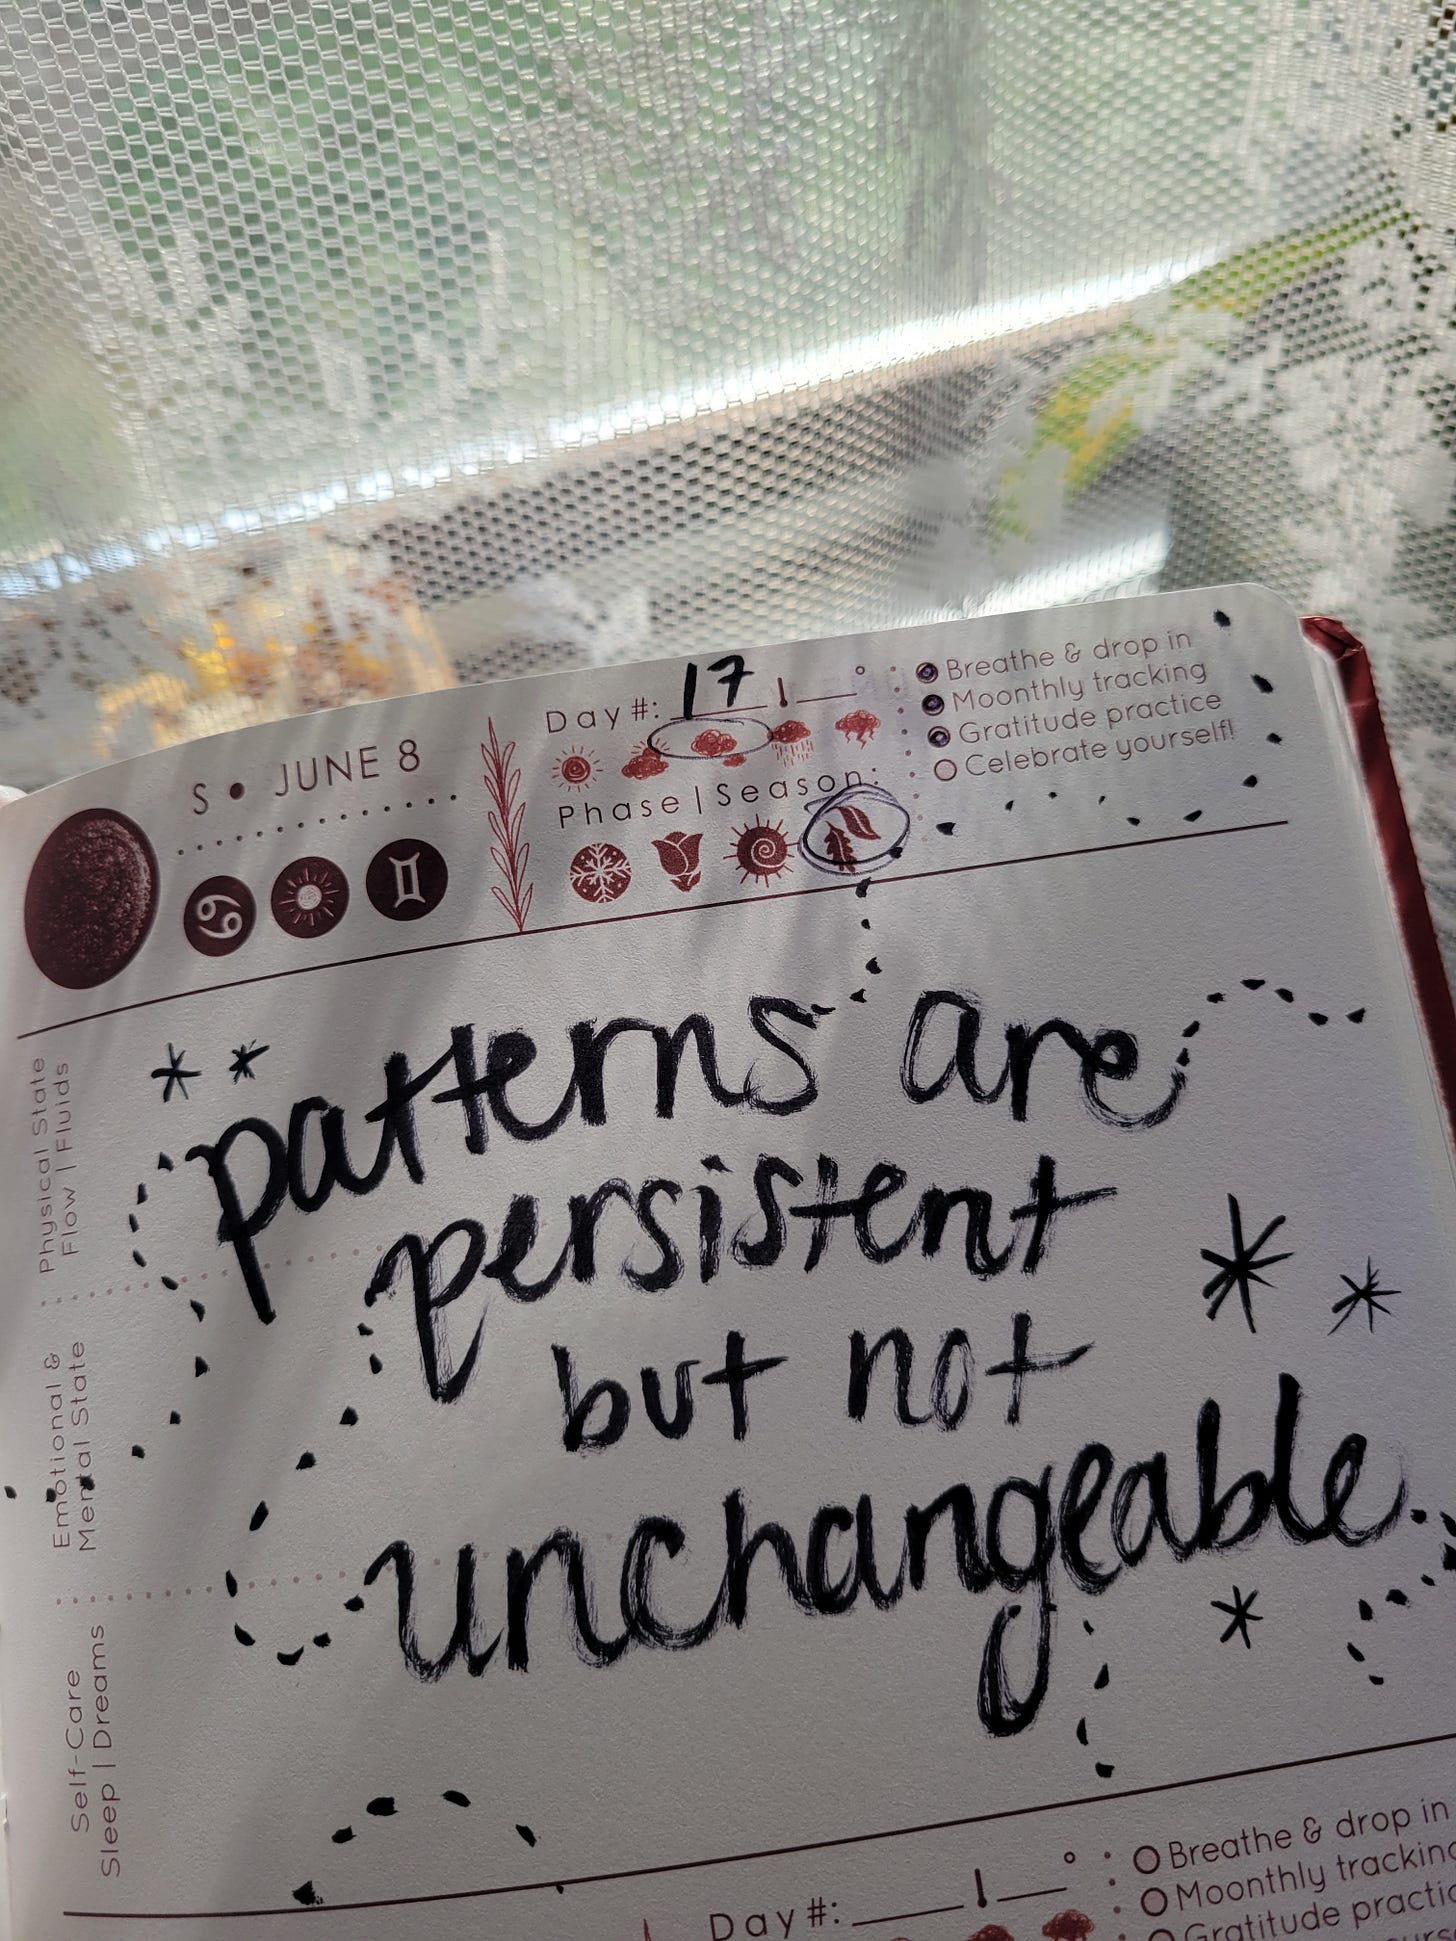 S • JUNE 8
Day #: 17
Phase | Season:
Breathe & drop in
Moonthly tracking
Gratitude practice
Celebrate yourself!
Physical State
Flow | Fluids
Emotional &
Mental State
Self-Care
Sleep | Dreams
patterns are
persistent
but not
unchangeable.
Day #:
Breathe & drop in
Moonthly tracking
Gratitude